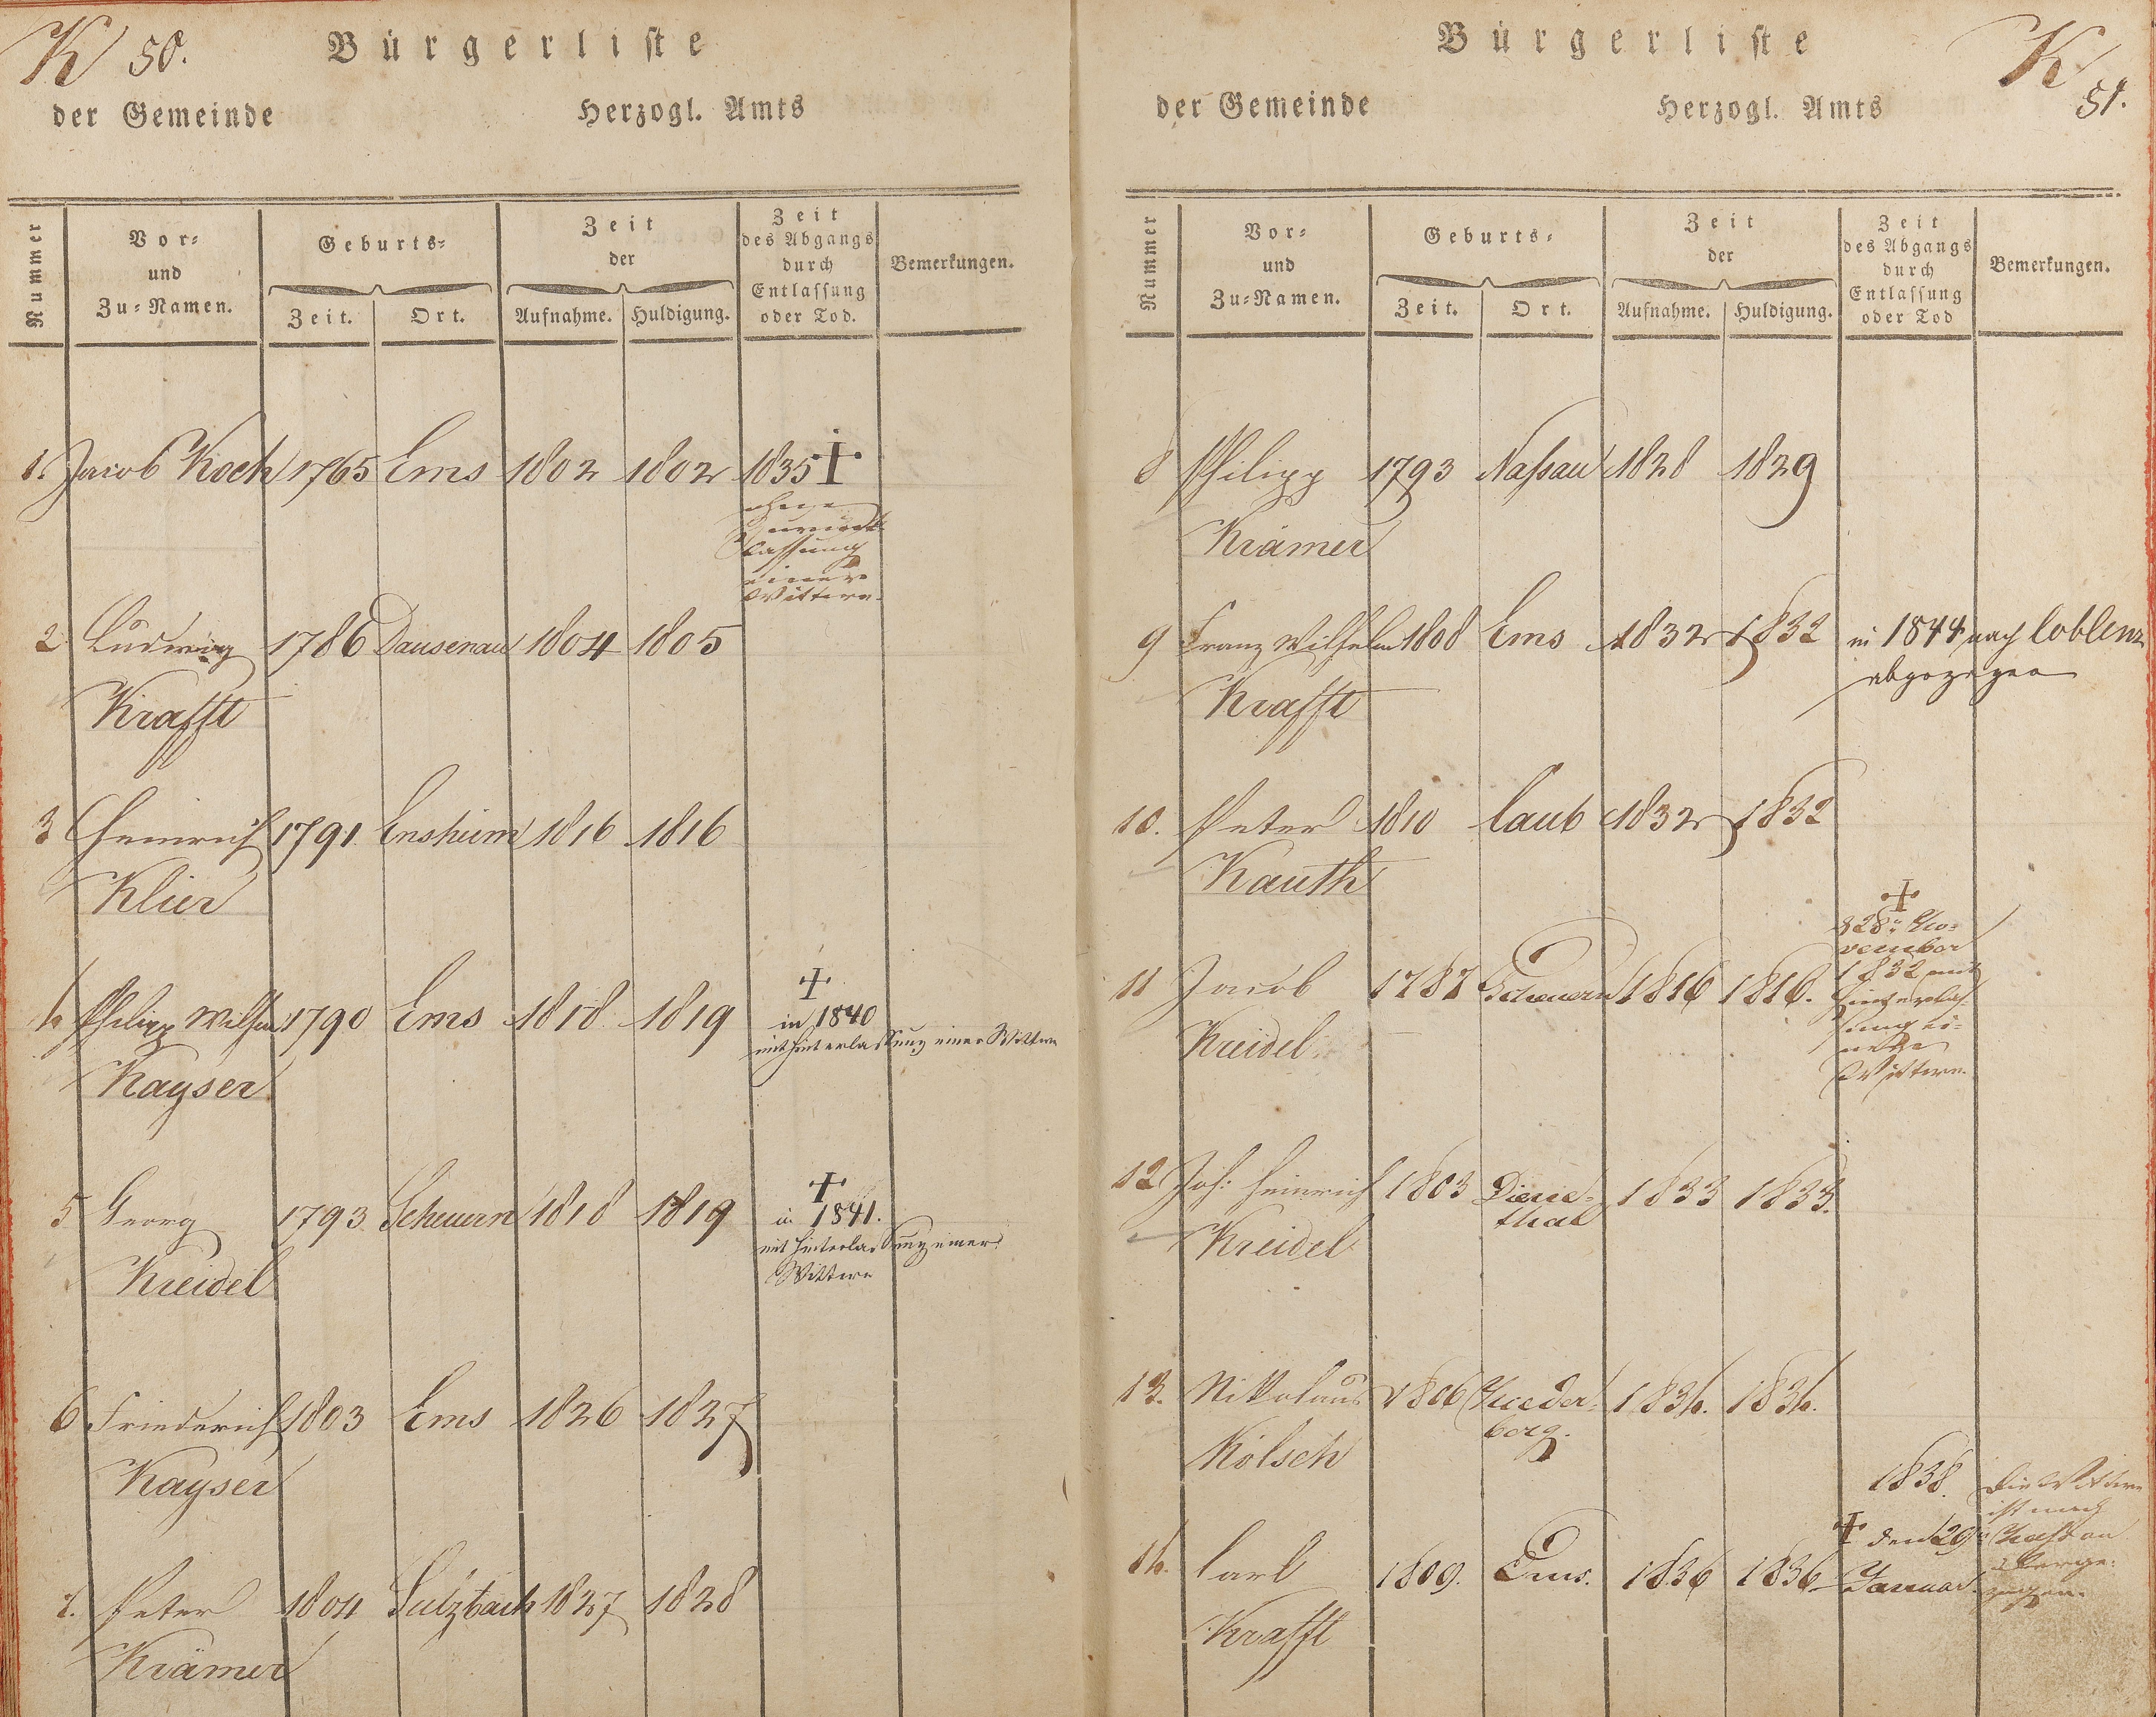 K 50.
Bürgerliste
der Gemeinde Herzogl. Amts
Nummer
Vor-
und
Zu-Namen.
Geburts-
Zeit. Ort.
Zeit
der
Aufnahme. Huldigung.
Zeit
des Abgangs
durch
Entlassung
oder Tod.
Bemerkungen.
1. Jacob Koch 1765 Ems 1802 1802 1835 †
ohne
Zurück
lassung
einer
Wittwe.
2 Ludwig 1786 Dausenau 1804 1805
Krafft
3 Heinrich 1791. Ensheim 1816 1816
Klier
4 Philipp Wilhelm 1790 Ems 1818 1819 †
in 1840
mit Hinterlassung einer Wittwe
Kayser
5 Georg 1793. Scheuern 1818 1819 †
in 1841.
mit Hinterlassung einer
Wittwe
Kreidel
6 Friederich 1803 Ems 1826 1827
Kayser
7. Peter 1804 Sulzbach 1827 1828
Krämer
Bürgerliste
K 51.
der Gemeinde Herzogl. Amts
Nummer
Vor-
und
Zu-Namen.
Geburts-
Zeit. Ort.
Zeit
der
Aufnahme. Huldigung.
Zeit
des Abgangs
durch
Entlassung
oder Tod
Bemerkungen.
8 Philipp 1793 Nassau 1828 1829
Krämer
9 Franz Wilhelm 1808 Ems 1832 1832 in 1844 nach Coblenz
abgezogen
Krafft
10. Peter 1810 Caub 1832 1832
Kauth
†
28n No-
vember
1832 mit
Hinterlas-
sung ei-
ner
Wittwe.
11 Jacob 1787 Scheuern 1816 1816.
Kreidel
12 Joh: Heinrich 1803 Diene-
thal 1833 1833.
Kreidel
13. Nikolaus 1806 Nieder-
berg. 1834. 1834.
Kölsch
1838.
† den 29n
Januar.
Die Wittwe
ist nach
14. Carl 1809. Ems. 1836 1836
Krafft